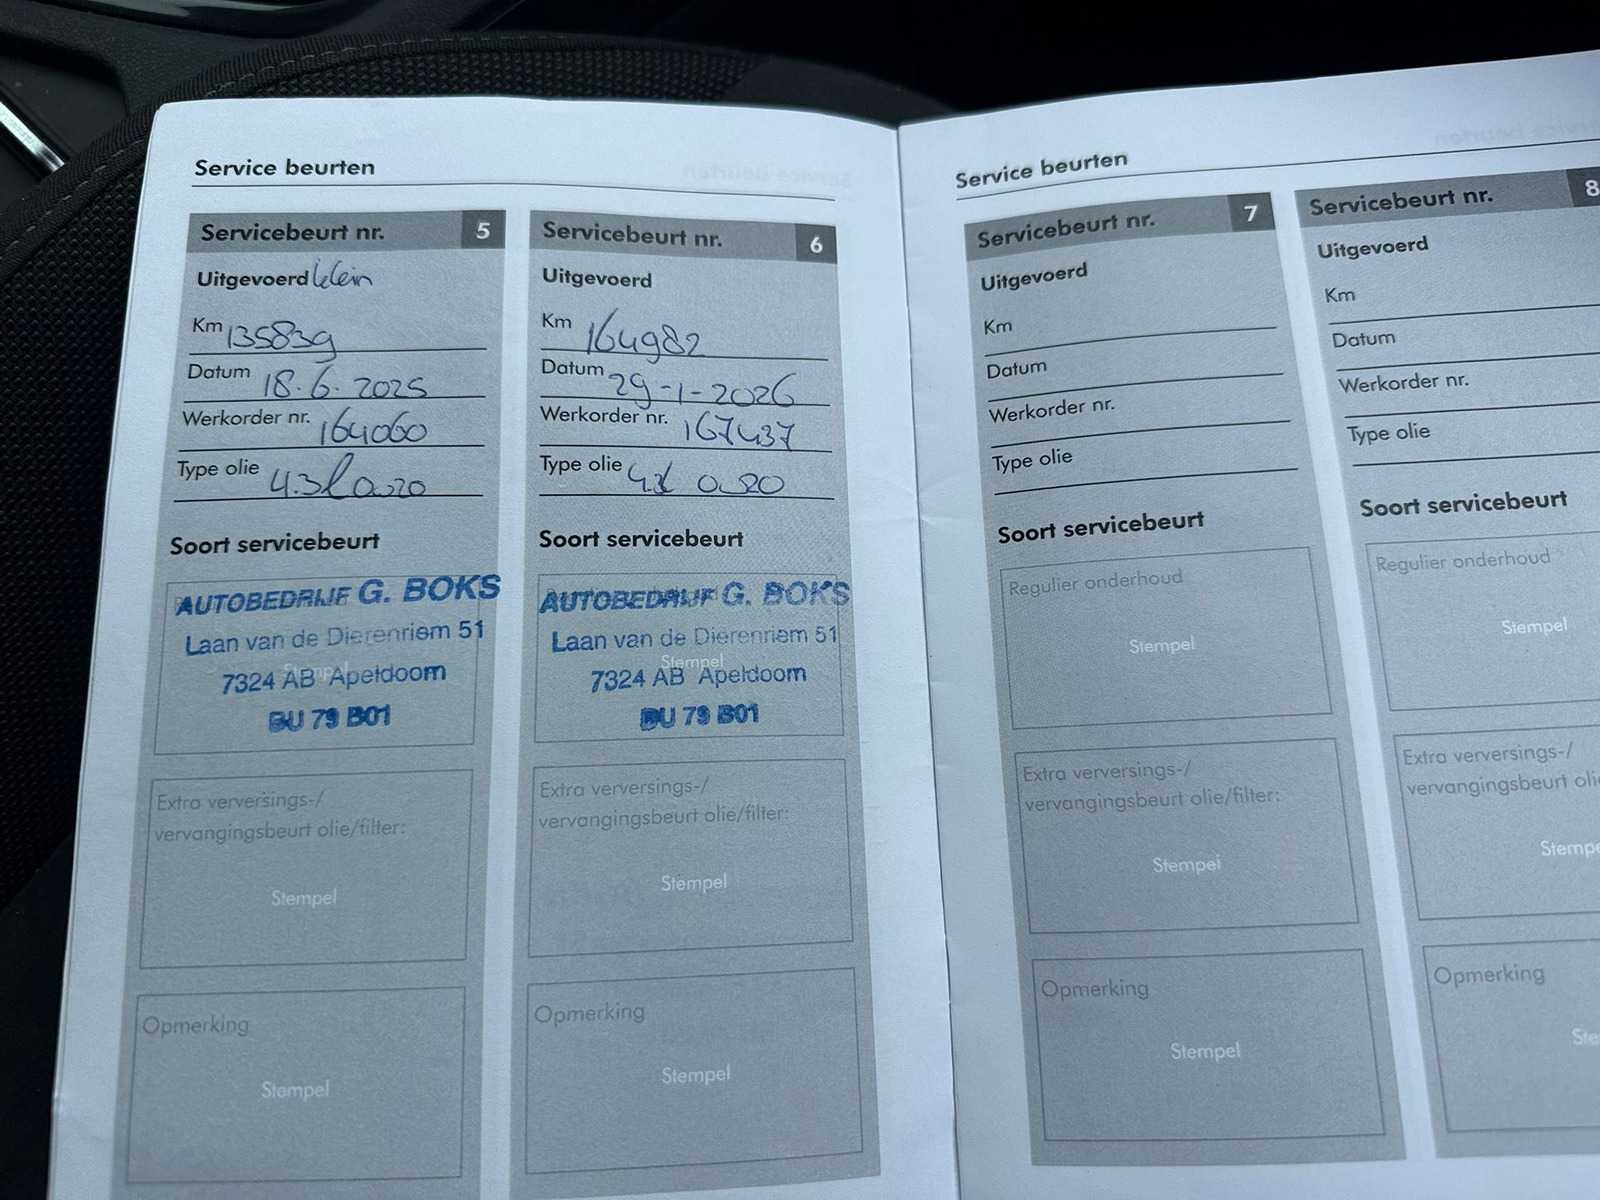 Service beurten
Servicebeurt nr. 5
Uitgevoerd klein
Km 135839
Datum 18.6.2025
Werkorder nr. 164060
Type olie 4.3l 0w20
Soort servicebeurt
AUTOBEDRIJF G. BOKS
Laan van de Dierenriem 51
7324 AB Apeldoorn
BU 79 B01
Extra verversings-/
vervangingsbeurt olie/filter:
Stempel
Opmerking
Stempel
Servicebeurt nr. 6
Uitgevoerd
Km 164982
Datum 29-1-2026
Werkorder nr. 167437
Type olie 0w20
Soort servicebeurt
AUTOBEDRIJF G. BOKS
Laan van de Dierenriem 51
Stempel
7324 AB Apeldoorn
BU 79 B01
Extra verversings-/
vervangingsbeurt olie/filter:
Stempel
Opmerking
Stempel
Service beurten
Servicebeurt nr. 7
Uitgevoerd
Km
Datum
Werkorder nr.
Type olie
Soort servicebeurt
Regulier onderhoud
Stempel
Extra verversings-/
vervangingsbeurt olie/filter:
Stempel
Opmerking
Stempel
Servicebeurt nr. 8
Uitgevoerd
Km
Datum
Werkorder nr.
Type olie
Soort servicebeurt
Regulier onderhoud
Stempel
Extra verversings-/
vervangingsbeurt oli
Stempe
Opmerking
Ste